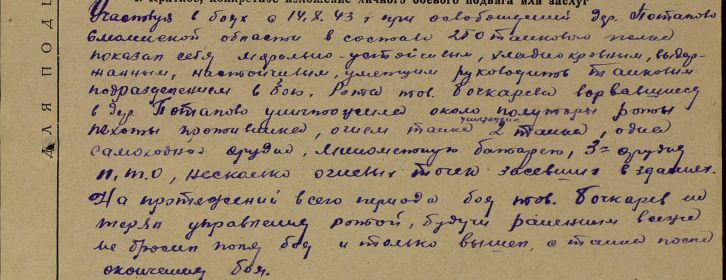 1. Краткое, конкретное изложение личного боевого подвига или заслуг
Участвуя в боях с 14.X.43 г при освобождении дер. Потапово
Смоленской области в составе 210 танкового полка
показал себя морально-устойчивым, хладнокровным, выдер-
жанным, настойчивым, умеющим руководить танковым
подразделением в бою. Рота тов. Бочкарева ворвавшись
в дер. Потапово уничтожила около полуторы роты
пехоты противника, огнем танка уничтожил 2 танка, одно
самоходное орудие, минометную батарею, 3-и орудия
П.Т.О, несколько огневых точек засевших в зданиях.
На протяжений всего периода боя тов. Бочкарев не
терял управления ротой, будучи раненным
не бросил поля боя и только вышел с танка после
окончания боя.
ДЛЯ ПОДШ